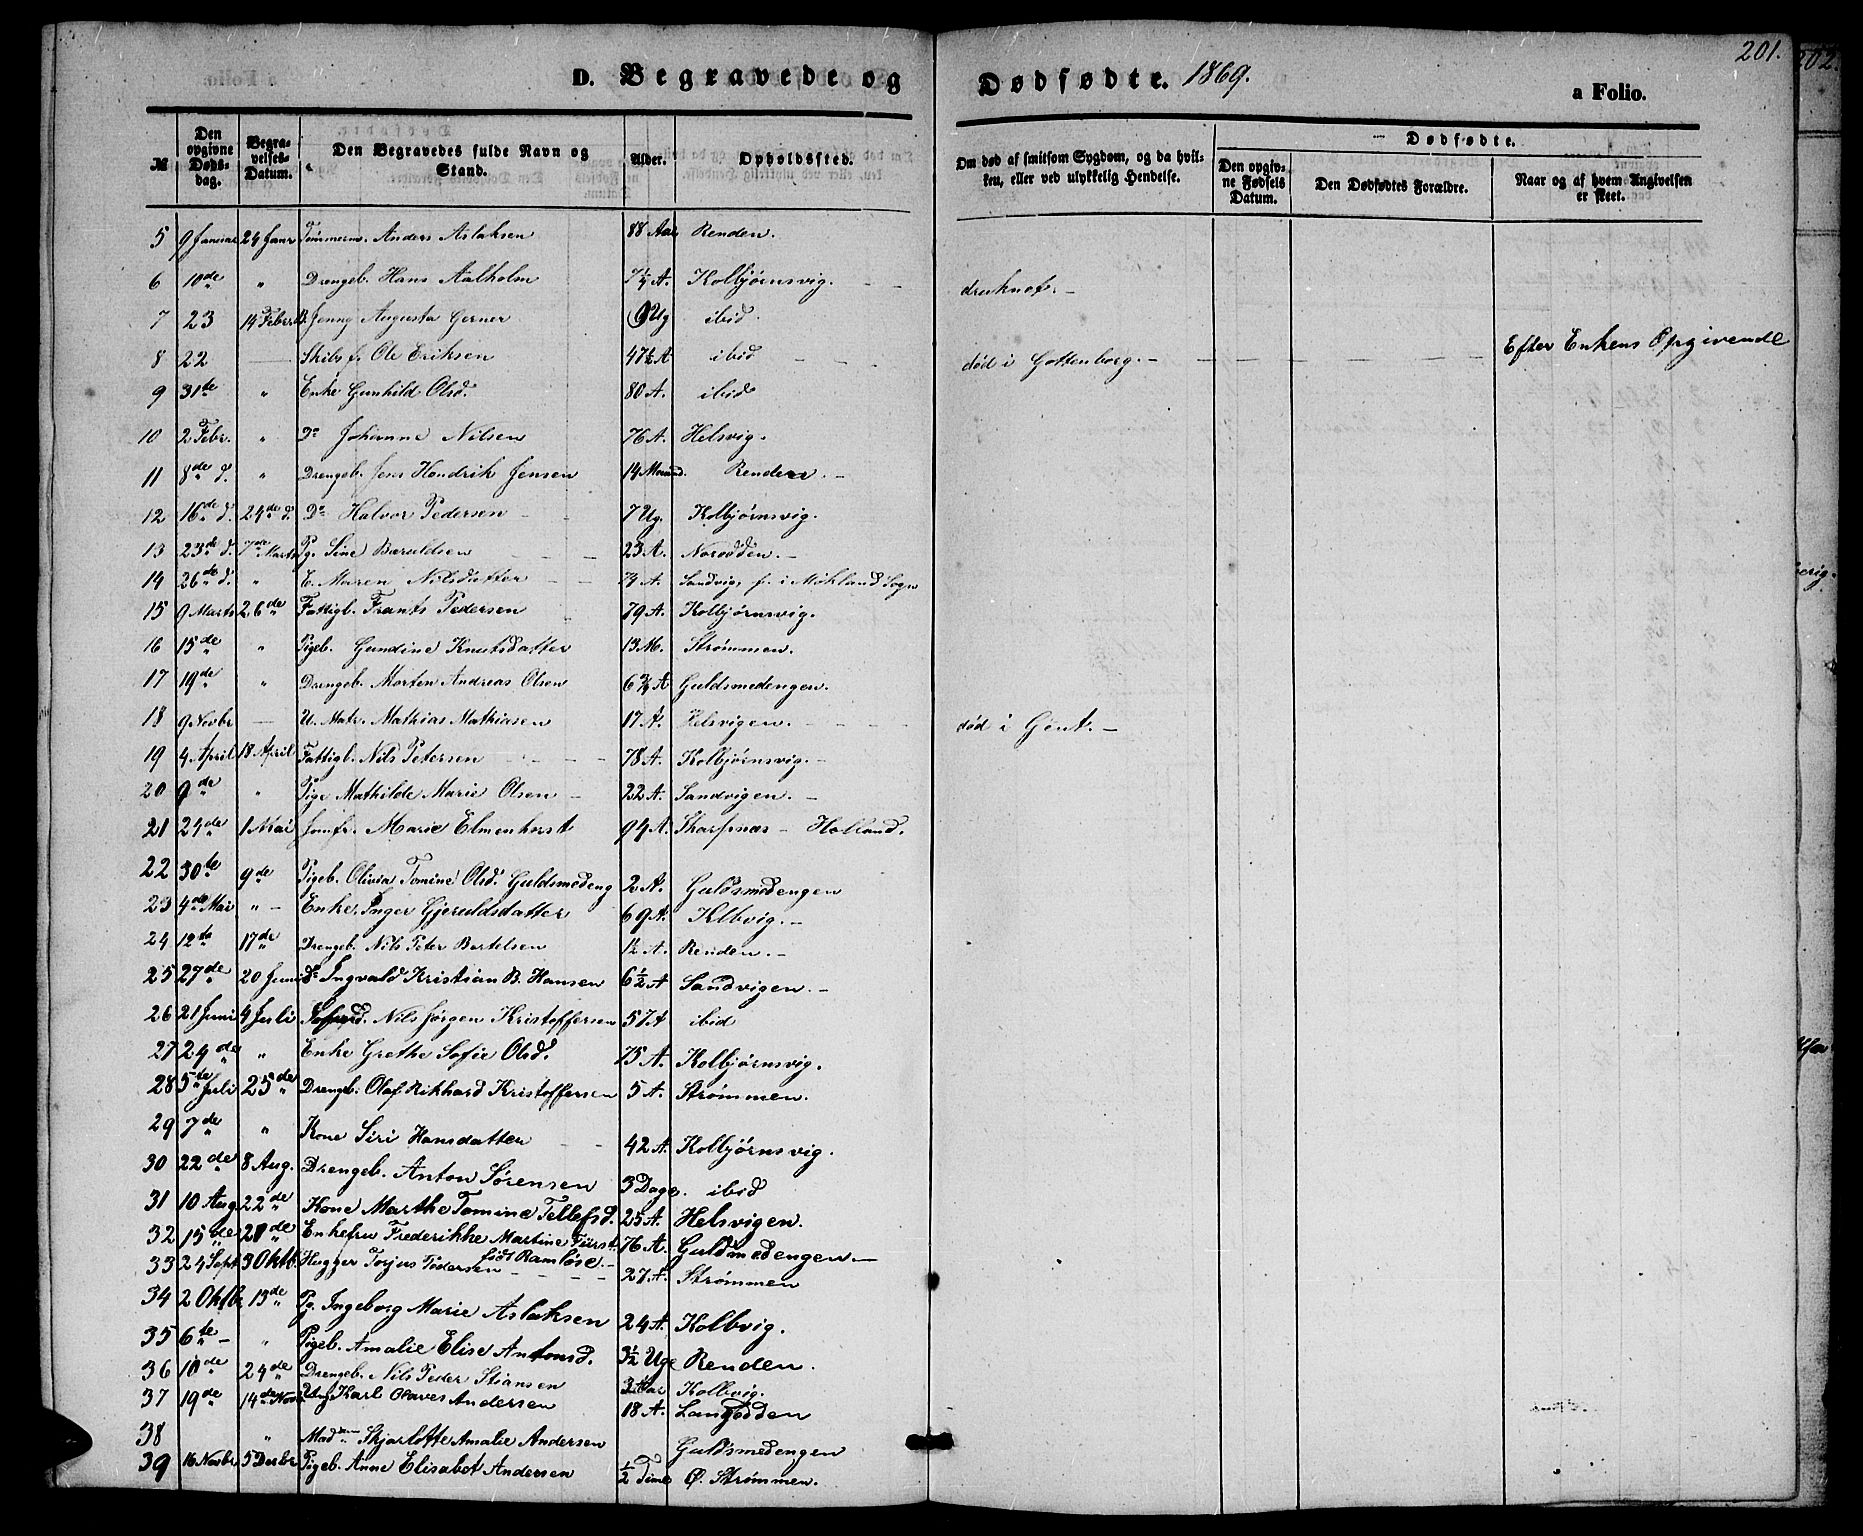 201.
202.
D. Begravede og Dødfødte. 1869. a Folio.
№ Den opgivne Døds-dag. Begra-velses-Datum. Den Begravedes fulde Navn og Stand. Alder. Opholdssted. Om død af smitsom Sygdom, og da hvil-ken, eller ved ulykkelig Hendelse. Dødfødte. Den opgiv-ne Fødsels Datum. Den Dødfødtes Forældre. Naar og af hvem Angivelsen er skeet.
5 9 Januar 24 Janr Tømmerm. Anders Aslaksen 88 Aar Renden.
6 10de " Drengeb. Hans Aalholm 7¼ A. Kolbjørnsvig. druknet.
7 23 14 Febr. Jenny Augusta Gerner 9 Ug ibid.
8 22 — Skibsf. Ole Eriksen 47½ A ibid død i Gottenborg. — Efter Enkens Opgivende
9 31te " Enke Gunhild Olsd. 80 A. ibid
10 2 Febr. " Do Johanne Nilsen 76 A. Helsvig.
11 8de d. " Drengeb. Jens Hendrik Jensen 14 Maaned. Renden. —
12 16de d. 24de d. Do Halvor Pedersen 7 Ug. Kolbjørnsvig.
13 23de d. 7de Marts Pg. Sine Baruldsen 23 A. Norodden. —
14 26de d. " E. Maren Nilsdatter 74 A. Sandvig, f. i Møhland Sogn
15 9 Marts 26de Fattigl. Frants Pedersen 79 A. Kolbjørnsvig.
16 15de " Pigeb. Gundine Knutsdatter 13 M. Strømmen.
17 19de " Drengeb. Morten Andreas Olsen 6¾ A Guldsmedengen.
18 9 Novbr — U. Matr. Mathias Mathiasen 17 A. Helsvigen. død i Gent. —
19 4 April 18 April Fattigl. Nils Petersen 78 A. Kolbjørnsvig. —
20 9de " Pige Mathilde Marie Olsen 22 A. Sandvigen. —
21 24de 1 Mai Jomfr. Marie Elmenhorst 94 A. Skarpnæs — Holland.
22 30te 9de Pigeb. Olivia Tomine Olsd. Guldsmedeng 2 A. Guldsmedengen
23 4de Mai " — Enke Inger Gjeruldsdatter 69 A. Klbvig. —
24 12te 17de Drengeb. Nils Peter Bertelsen 1½ A. Renden. —
25 27de 20 Juni Do Ingvald Kristian B. Hansen 6½ A Sandvigen. —
26 21 Juni 4 Juli Nils Jørgen Kristoffersen 57 A ibid
27 29de " Enke Grethe Sofie Olsd. 75 A. Kolbjørnsvig.
28 5te Juli 25de Drengeb. Olaf Rikhard Kristoffersen 5 A. Strømmen.
29 7de " Kone Siri Hansdatter 42 A. Kolbjørnsvig.
30 22de 8 Aug. Drengeb. Anton Sørensen 3 Dage. ibid
31 10 Aug 22de Kone Marthe Tomine Tellefsd. 25 A. Helsvigen.
32 15de 29de Enkefru Frederikke Martine Fürst 76 A. Guldsmedengen —
født Ramløse. —
33 24 Sept 3 Oktb. Hugger Torjus Pedersen 27 A. Strømmen
34 2 Oktbr 13de Pg. Ingeborg Marie Aslaksen 24 A. Kolbvig.
35 6te — " Pigeb. Amalie Elise Antonsd. 3½ Uge Renden.
36 10de 24de Drengeb. Nils Peder Stiansen 3 Aar Kolbvig.
37 19de 14de Novb. Ung. Karl Olaves Andersen 18 A. Langødden
38 " Mad. Skjarlotte Amalie Andersen Guldsmedengen
39 16 Novbr 5 Decbr Pigeb. Anne Elisabet Andersen ½ Time Ø. Strømmen.